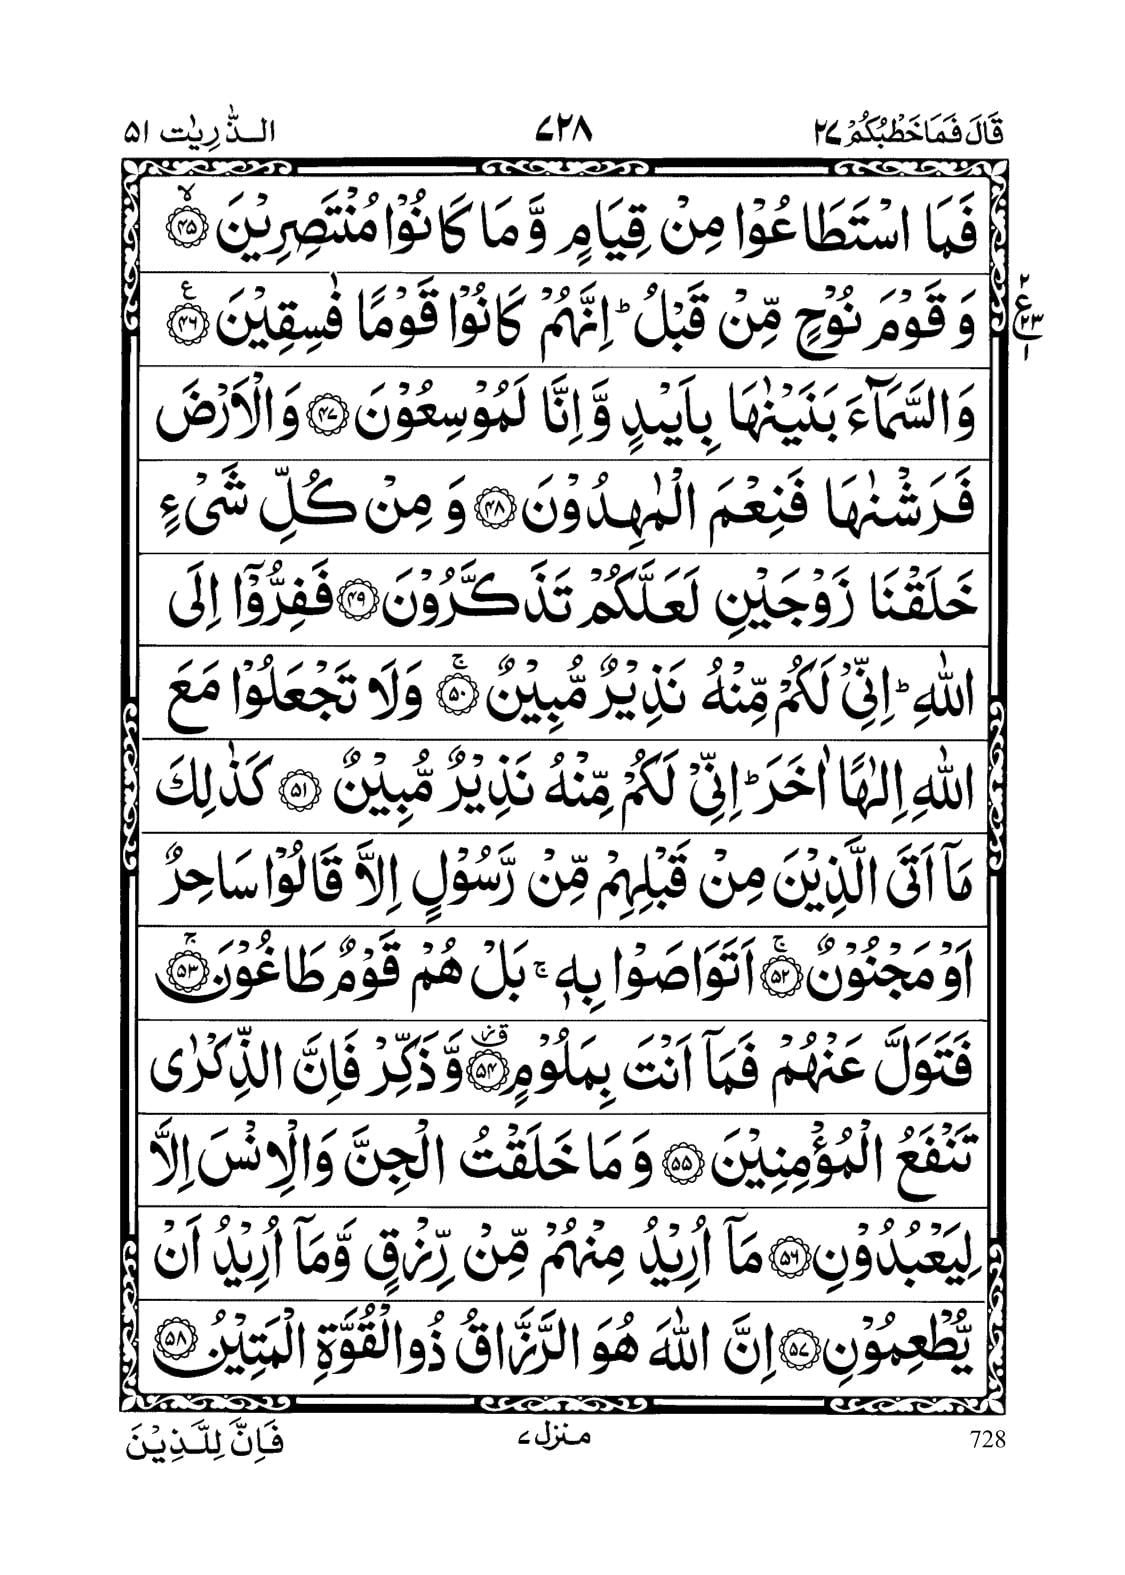 قَالَ فَمَا خَطْبُكُمْ ۲۷ ۷۲۸ الذّٰرِیٰت ۵۱
فَمَا اسْتَطَاعُوْا مِنْ قِیَامٍ وَّ مَا كَانُوْا مُنْتَصِرِیْنَ ﴿۴۵﴾ۙ
وَ قَوْمَ نُوْحٍ مِّنْ قَبْلُ ؕ اِنَّهُمْ كَانُوْا قَوْمًا فٰسِقِیْنَ ﴿۴۶﴾ ع
۲ ع ۲۳ ۱
وَ السَّمَآءَ بَنَیْنٰهَا بِاَیْىدٍ وَّ اِنَّا لَمُوْسِعُوْنَ ﴿۴۷﴾ وَ الْاَرْضَ
فَرَشْنٰهَا فَنِعْمَ الْمٰهِدُوْنَ ﴿۴۸﴾ وَ مِنْ كُلِّ شَیْءٍ
خَلَقْنَا زَوْجَیْنِ لَعَلَّكُمْ تَذَكَّرُوْنَ ﴿۴۹﴾ فَفِرُّوْۤا اِلَی
اللّٰهِ ؕ اِنِّیْ لَكُمْ مِّنْهُ نَذِیْرٌ مُّبِیْنٌ ﴿۵۰﴾ۚ وَ لَا تَجْعَلُوْا مَعَ
اللّٰهِ اِلٰهًا اٰخَرَ ؕ اِنِّیْ لَكُمْ مِّنْهُ نَذِیْرٌ مُّبِیْنٌ ﴿۵۱﴾ كَذٰلِكَ
مَاۤ اَتَی الَّذِیْنَ مِنْ قَبْلِهِمْ مِّنْ رَّسُوْلٍ اِلَّا قَالُوْا سَاحِرٌ
اَوْ مَجْنُوْنٌ ﴿۵۲﴾ۚ اَتَوَاصَوْا بِهٖ ۚ بَلْ هُمْ قَوْمٌ طَاغُوْنَ ﴿۵۳﴾ۚ
فَتَوَلَّ عَنْهُمْ فَمَاۤ اَنْتَ بِمَلُوْمٍ ﴿۵۴﴾ وَّ ذَكِّرْ فَاِنَّ الذِّكْرٰی
تَنْفَعُ الْمُؤْمِنِیْنَ ﴿۵۵﴾ وَ مَا خَلَقْتُ الْجِنَّ وَ الْاِنْسَ اِلَّا
لِیَعْبُدُوْنِ ﴿۵۶﴾ مَاۤ اُرِیْدُ مِنْهُمْ مِّنْ رِّزْقٍ وَّ مَاۤ اُرِیْدُ اَنْ
یُّطْعِمُوْنِ ﴿۵۷﴾ اِنَّ اللّٰهَ هُوَ الرَّزَّاقُ ذُو الْقُوَّةِ الْمَتِیْنُ ﴿۵۸﴾
728 منزل ۷ فَاِنَّ لِلَّذِیْنَ